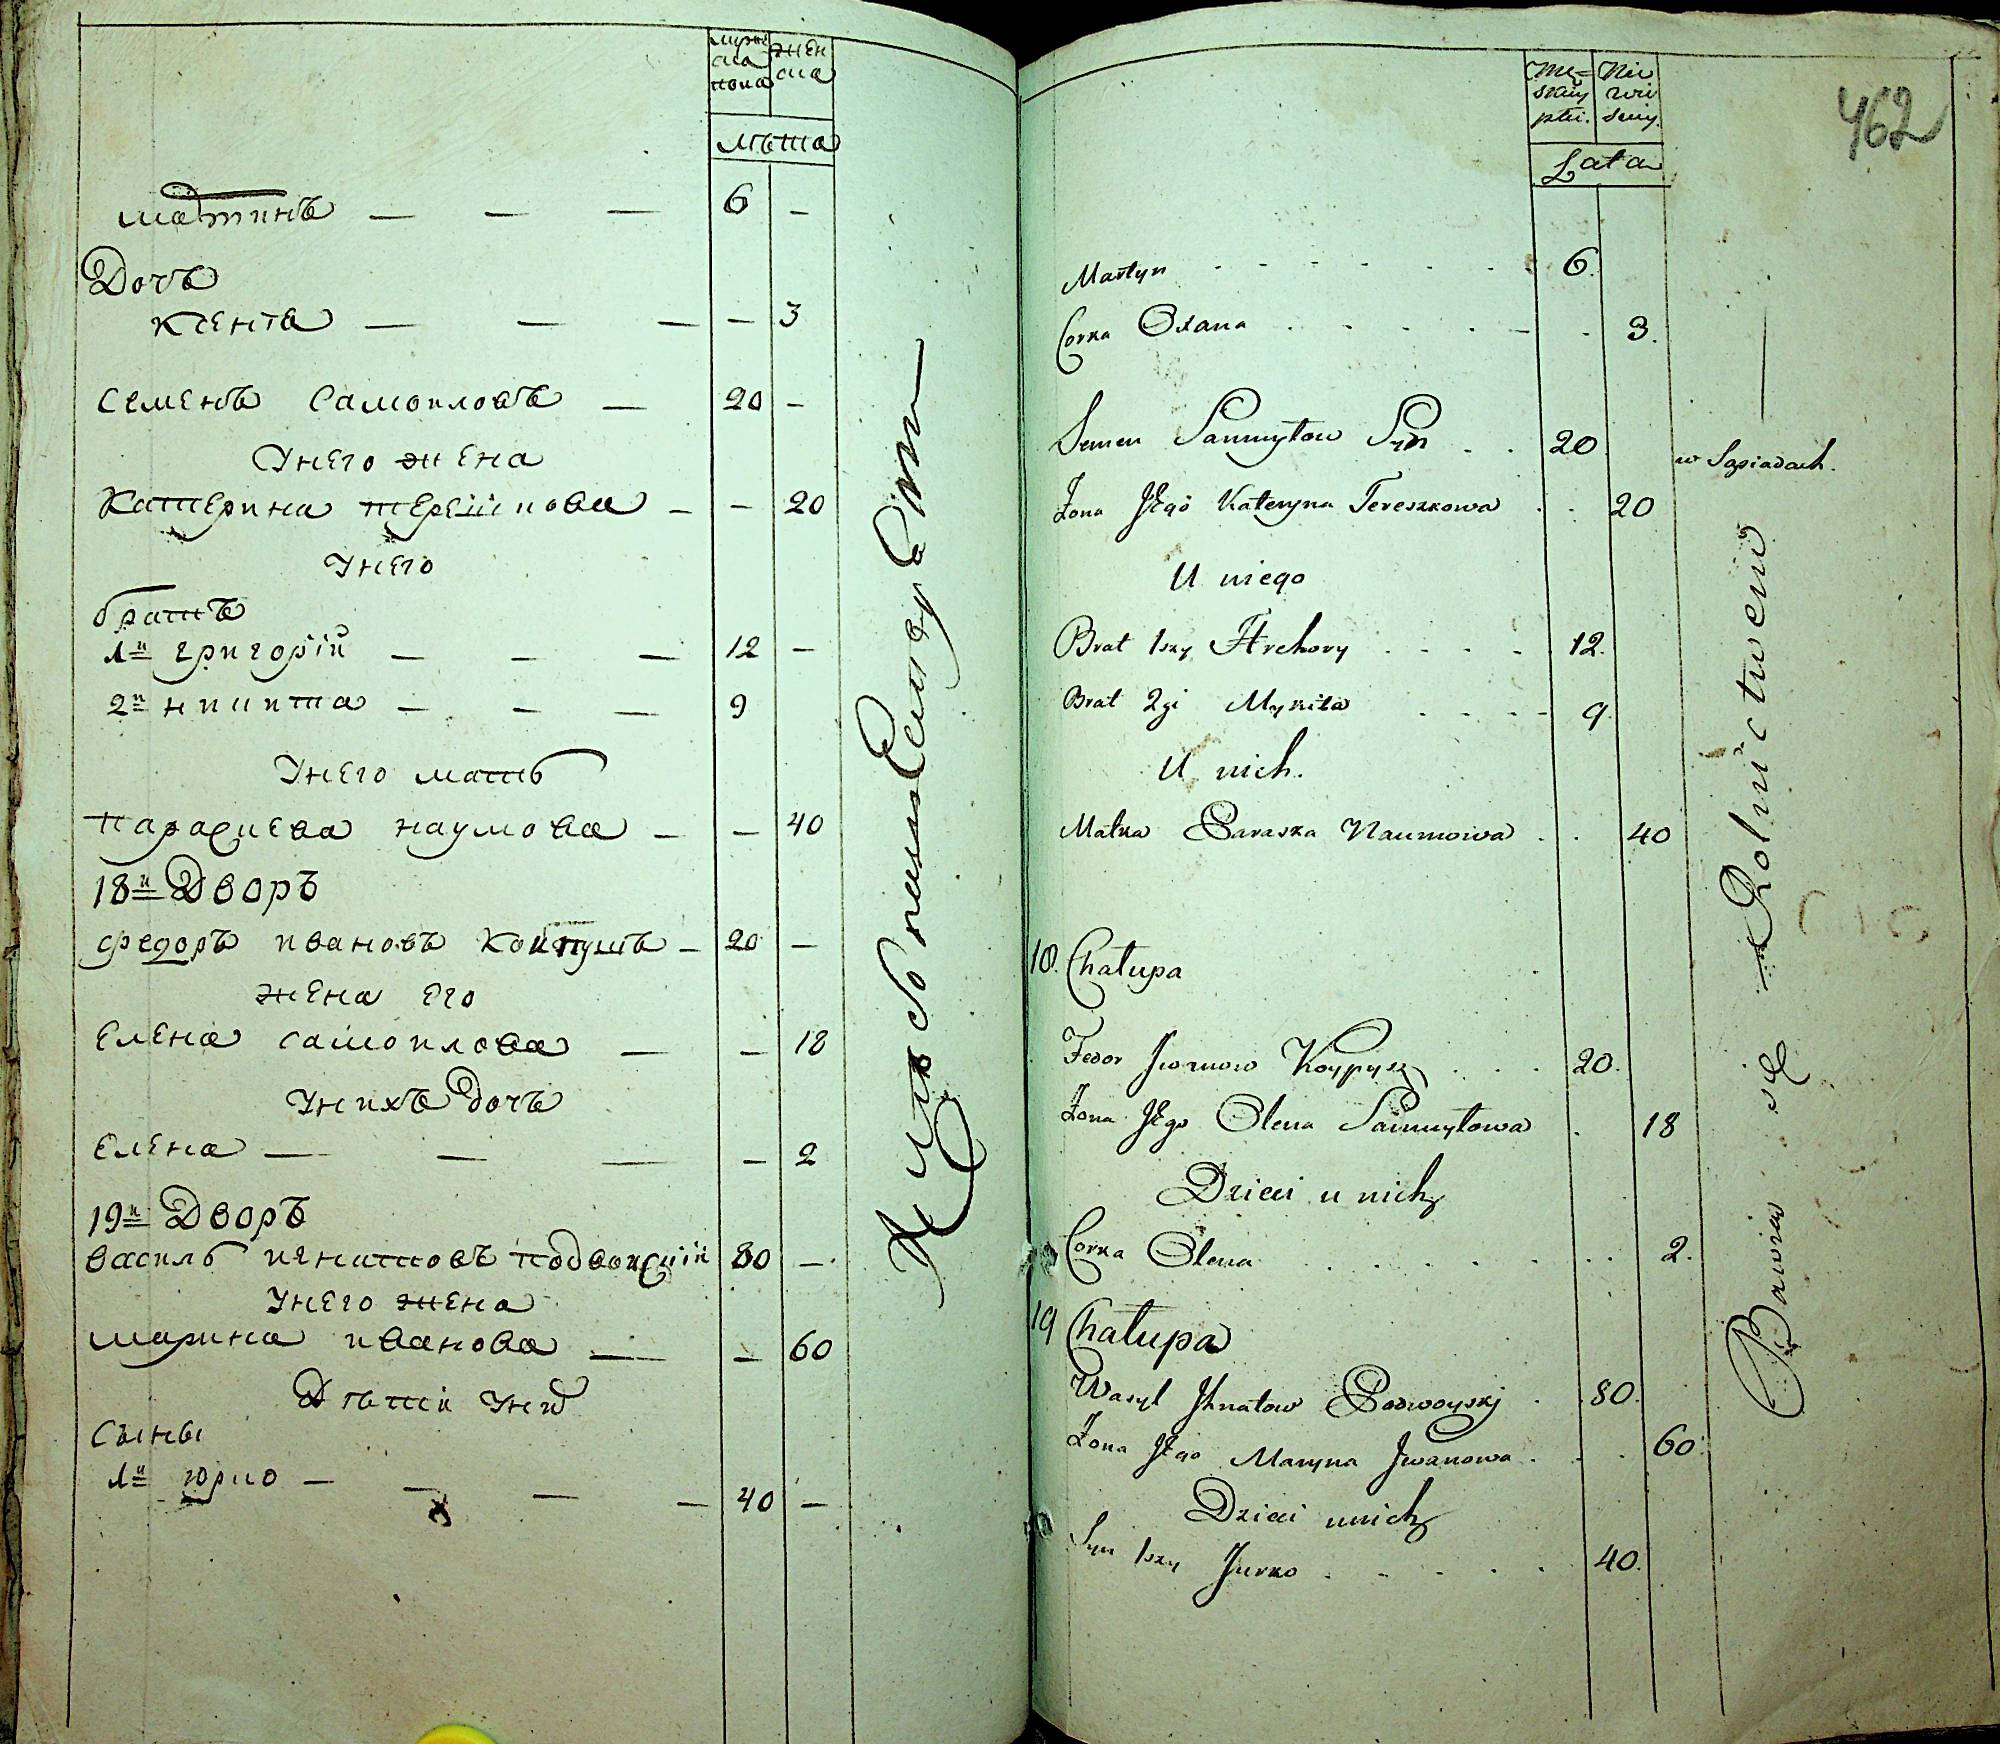 муже
ска
пола
жен
ска
лѣта
мартинъ — — — 6 —
Дочъ
ксеня — — — — 3
семенъ самоиловъ — 20 —
Унего жена
Катерина терешкова — — 20
Унего
братъ
1й григорій — — — 12 —
2й никита — — — 9
Унего мать
параскева наумова — — 40
18й Дворъ
федоръ ивановъ коипушъ — 20 —
жена его
елена самоилова — — 18
Унихъ дочъ
елена — — — — 2
19й Дворъ
василь игнатовъ подвоискій 80 —
Унего жена
марина иванова — — 60
Дѣти Них
Сыны
1й юрко — — — — 40 —
Хлебопашествуют
462
Mę=
skiey
płci.
Nie
wie
sciey.
Lata
Martyn . . . . . . . 6.
Corka Oxana . . . . . - . 3.
Semen Samuyłow Syn . . 20
w Sąsiadach.
Żona Jego Kateryna Tereszkowa . . 20
U niego
Brat 1szy Hrehory . . . . 12.
Brat 2gi Mykita . . . - 9.
U nich.
Matka Paraska Naumowa . . 40
18. Chałupa
Fedor Jwanow Koypysz . . . 20.
Żona Jego Olena Samuyłowa . 18
Dzieci u nich
Corka Olena . . . . . . . 2.
19 Chałupa
Wasyl Jhnatow Podwoyski . 80.
Żona Jego Maryna Jwanowa . . . 60.
Dzieci unich
Syn 1szy Jurko . . . . . 40.
Bawią się Rolnictwem